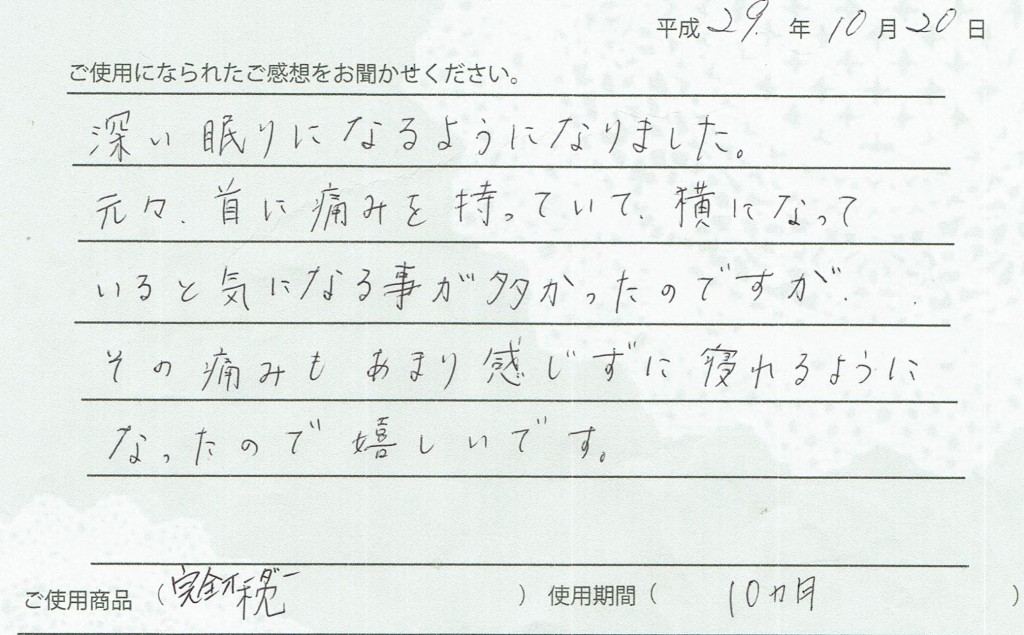 平成 29. 年 10 月 20 日
ご使用になられたご感想をお聞かせください。
深い眠りになるようになりました。
元々、首に痛みを持っていて、横になって
いると気になる事が多かったのですが、
その痛みもあまり感じずに寝れるように
なったので嬉しいです。
ご使用商品 (完全 ) 使用期間 ( 10ヵ月 )